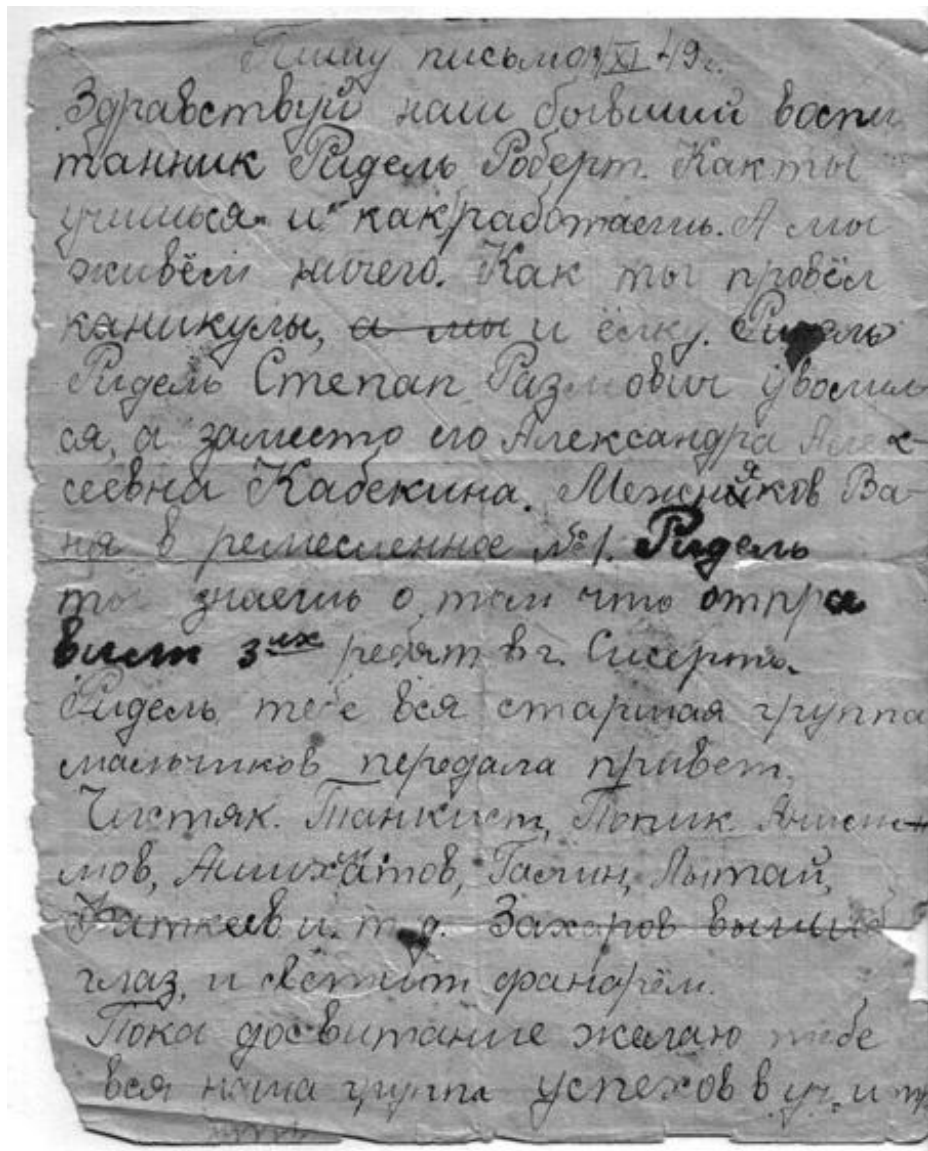 Пишу письмо XI 49 г.
Здравствуй наш бывший воспи
танник Ридель Роберт. Как ты
учишься и как работаешь. А мы
живём ничего. Как ты провёл
каникулы, а мы и ёлку. Ридель
Ридель Степан уволил
ся, а заместо его Александра Алек
сеевна Кабекина. Межняков Ва-
ня в ремесленное №1. Ридель
ты знаешь о том что отпра
вили 3их ребят в г. Сисерть.
Ридель тебе вся старшая группа
мальчиков передала привет.
Чистяк. Танкист, Попик.
мов, Галин, Лытай,
и т. д. Захаров
глаз, и светит фанарём.
Пока досвитание желаю тебе
вся наша группа успехов в уч. и